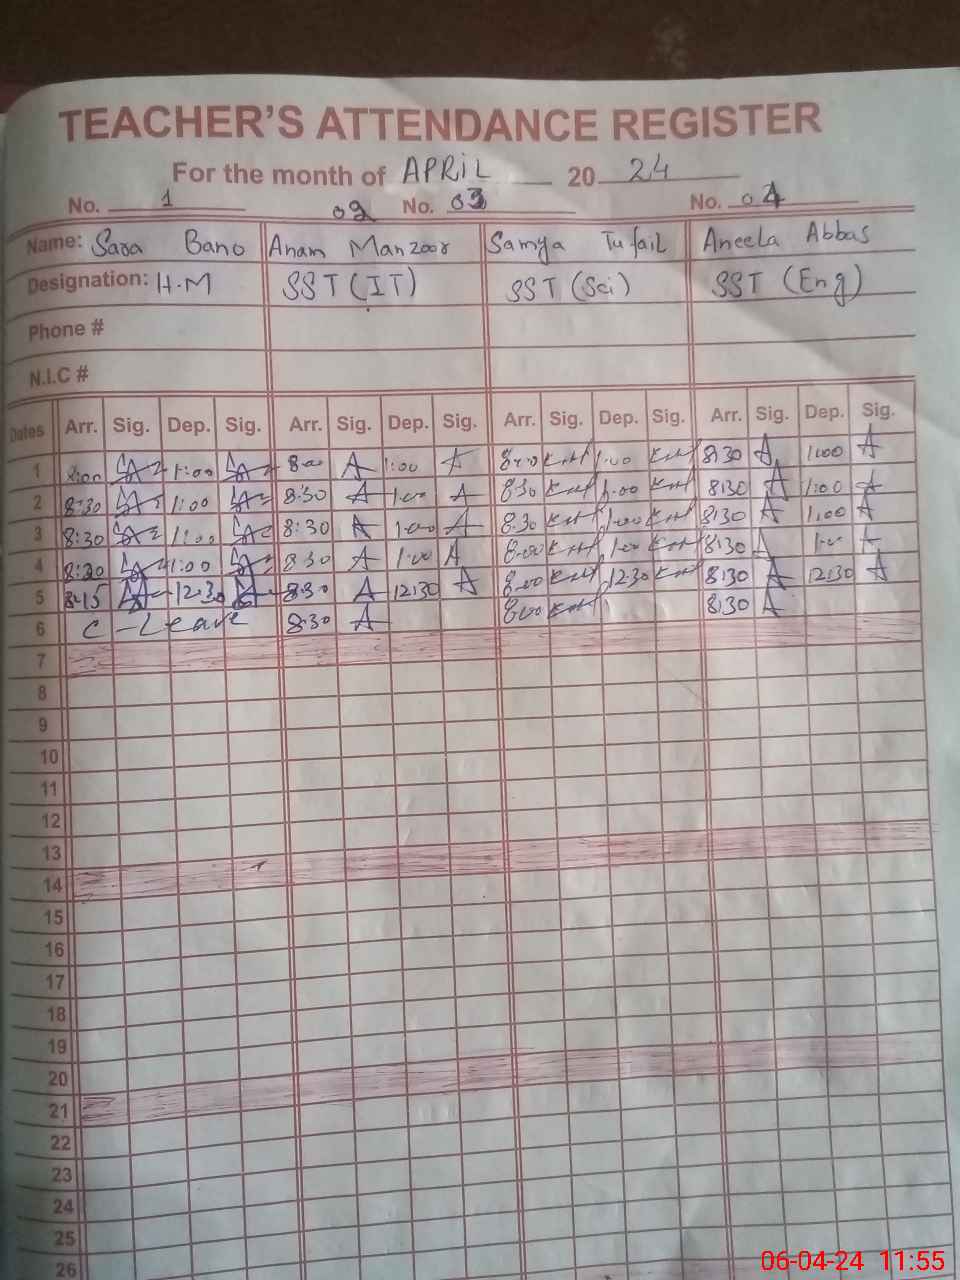 TEACHER'S ATTENDANCE REGISTER
For the month of APRIL 20 24
No. 1 02 No. 03 No. 04
Name: Sara Bano Anam Manzoor Samya Tufail Aneela Abbas
Designation: H.M SST (IT) SST (Sci) SST (Eng)
Phone #
N.I.C #
Dates Arr. Sig. Dep. Sig. Arr. Sig. Dep. Sig. Arr. Sig. Dep. Sig. Arr. Sig. Dep. Sig.
1 8:00 1:00 8:00 A 1:00 A 1:00 8:30 A 1:00 A
2 8:30 1:00 8:30 A 1:00 A 8:30 1:00 8:30 A 1:00 A
3 8:30 1:00 8:30 A 1:00 A 8:30 1:00 8:30 A 1:00 A
4 8:20 1:00 8:30 A 1:00 A 8:00 1:00 8:30 A 1:00 A
5 8:15 12:30 8:30 A 12:30 A 8:00 12:30 8:30 A 12:30 A
6 C-Leave 8:30 A 8:00 8:30 A
7
8
9
10
11
12
13
14
15
16
17
18
19
20
21
22
23
24
25
26
06-04-24 11:55